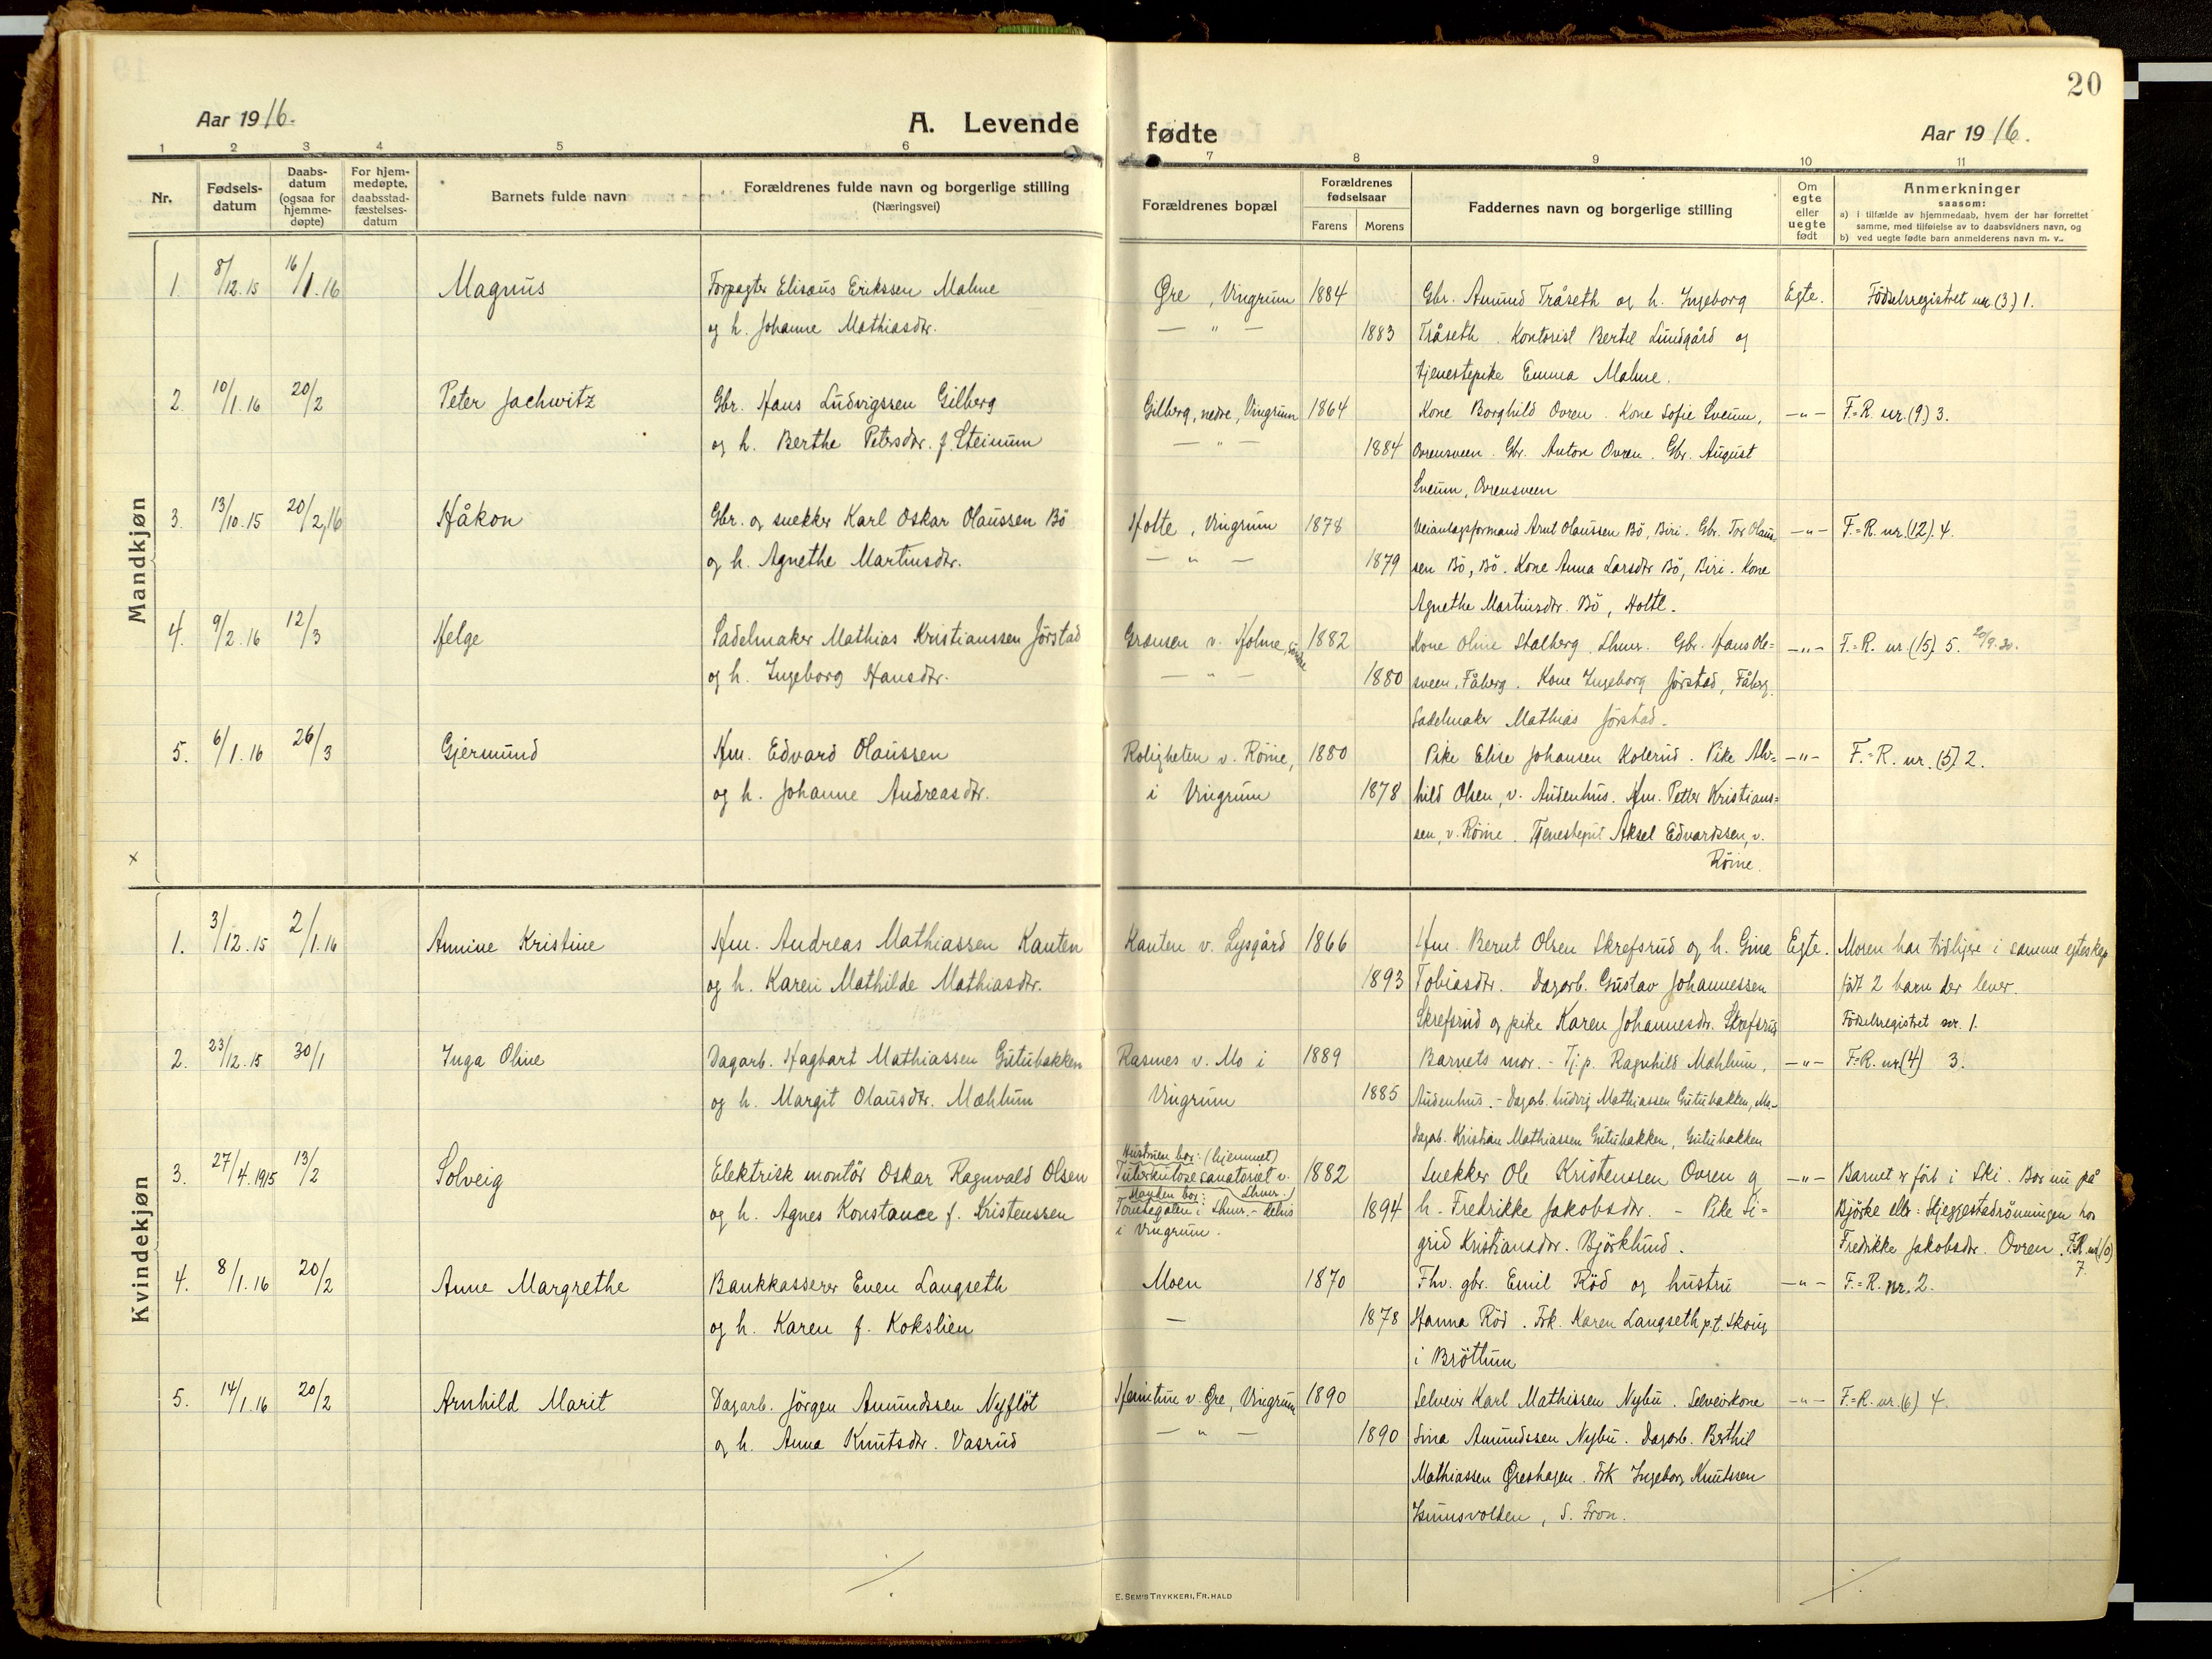 20
Aar 1916.
A. Levende fødte
Aar 1916.
1 2 3 4 5 6 7 8 9 10 11
Nr.
Fødsels-
datum
Daabs-
datum
(ogsaa for
hjemme-
døpte)
For hjem-
medøpte,
daabsstad-
fæstelses-
datum
Barnets fulde navn
Forældrenes fulde navn og borgerlige stilling
(Næringsvei)
Forældrenes bopæl
Forældrenes
fødselsaar
Farens Morens
Faddernes navn og borgerlige stilling
Om
egte
eller
uegte
født
Anmerkninger
saasom:
a) i tilfælde av hjemmedaab, hvem der har forrettet
samme, med tilføielse av to daabsvidners navn, og
b) ved uegte fødte barn anmelderens navn m. v..
Mandkjøn
1. 8/12.15 16/1.16 Magnus Forpagter Elisæus Erikssen Malme Øre, Vingrum 1884 Gbr. Amund Tråseth og h. Ingeborg Egte. Födselsregistret nr. (3) 1.
og h. Johanne Mathiasdtr. — " — 1883 Tråseth. Kontorist Bertel Lundgård og
tjenestepike Emma Malme.
2. 10/1.16 20/2 Peter Jachwitz Gbr. Hans Ludvigssen Gilberg Gilberg, nedre, Vingrum 1864 Kone Borghild Ovren. Kone Sofie Sveum, —"— F.=R. nr. (9) 3.
og h. Berthe Petersdtr. f. Steinum — " — 1884 Ovrensveen. Gbr. Anton Ovren. Gbr. August
Sveum, Ovrensveen
3. 13/10.15 20/2,16 Håkon Gbr. og snekker Karl Oskar Olaussen Bö Holte, Vingrum 1878 Veianlagsformand Arnt Olaussen Bö, Biri. Gbr. Tor Olaus= —"— F.=R. nr. (12). 4.
og h. Agnethe Martinsdtr. — " — 1879 sen Bö, Bö. Kone Anna Larsdtr Bö, Biri. Kone
Agnethe Martinsdtr. Bö, Holte.
4. 9/2.16 12/3 Helge Sadelmaker Mathias Kristianssen Jörstad Gramen v. Holme, söndre 1882 Kone Oline Stalberg, Lhmr. Gbr. Hans Ole= —"— F.=R. nr. (15). 5. 20/9.30.
og h. Ingeborg Hansdtr. — " — 1880 sveen, Fåberg. Kone Ingeborg Jörstad, Fåberg.
Sadelmaker Mathias Jörstad.
5. 6/1.16 26/3 Gjermund Hm. Edvard Olaussen Roligheten v. Röine, 1880 Pike Elise Johansen Kolerud. Pike Alv= —"— F.=R. nr. (5). 2.
og h. Johanne Andreasdtr. i Vingrum 1878 hild Olsen, v. Audenhus. Hm. Petter Kristians=
sen, v. Röine. Tjenestegut Aksel Edvardssen, v.
Röine.
x
Kvindekjøn
1. 3/12.15 2/1.16 Annine Kristine Hm. Andreas Mathiassen Kanten Kanten v. Lysgård 1866 Hm. Bernt Olsen Skrefsrud og h. Gina Egte. Moren har tidligere i samme egteskap
og h. Karen Mathilde Mathiasdtr. 1893 Tobiasdtr. Dagarb. Gustav Johannessen födt 2 barn der lever.
Skrefsrud og pike Karen Johannesdtr. Skrefsrud Födselsregistret nr. 1.
2. 23/12.15 30/1 Inga Oline Dagarb. Hagbart Mathiassen Gutubakken Rasmes v. Mo i 1889 Barnets mor. - Tj.p. Ragnhild Mæhlum, —"— F.=R. nr. (4) 3.
og h. Margit Olausdtr. Mæhlum Vingrum 1885 Audenhus. - Dagarb. Ludvig Mathiassen Gutubakken, Mo-
Dagarb. Kristian Mathiassen Gutubakken, Gutubakken
3. 27/4.1915 13/2 Solveig Elektrisk montör Oskar Ragnvald Olsen Hustruen bor: (hjemmet) 1882 Snekker Ole Kristenssen Ovren og —"— Barnet er född i Ski. Bor nu på
Tuberkulosesanatoriet v.
Manden bor: Lhmr.)
og h. Agnes Konstance f. Kristenssen Torvtegaten i Lhmr. - delvis 1894 h. Fredrikke Jakobsdtr. - Pike Si= Björke eller Skjeggestadrönningen hos
i Vingrum. grid Kristiansdtr. Björklund. Fredrikke Jakobsdtr. Ovren. F.R. nr. (10)
7.
4. 8/1.16 20/2 Anne Margrethe Bankkasserer Even Langseth Moen 1870 Fhv. gbr. Emil Röd og hustru —"— F.=R. nr. 2.
og h. Karen f. Kokslien — 1878 Hanna Röd. Frk. Karen Langseth p.t. Skoug
i Bröttum
5. 14/1.16 20/2 Arnhild Marit Dagarb. Jörgen Amundssen Nyflöt Heimtun v. Øre, Vingrum 1890 Selveier Karl Mathissen Nybu. Selveierkone —"— F.=R. nr. (6) 4.
og h. Anna Knutsdtr. Vasrud — " — 1890 Sina Amundssen Nybu. Dagarb. Berthil
Mathiassen Øreshagen. Frk Ingeborg Knutssen
Isumsvolden, S. Fron.
E. SEM'S TRYKKERI, FR.HALD